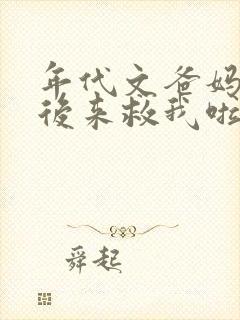 年代文爸妈
後来救我啦
舜起